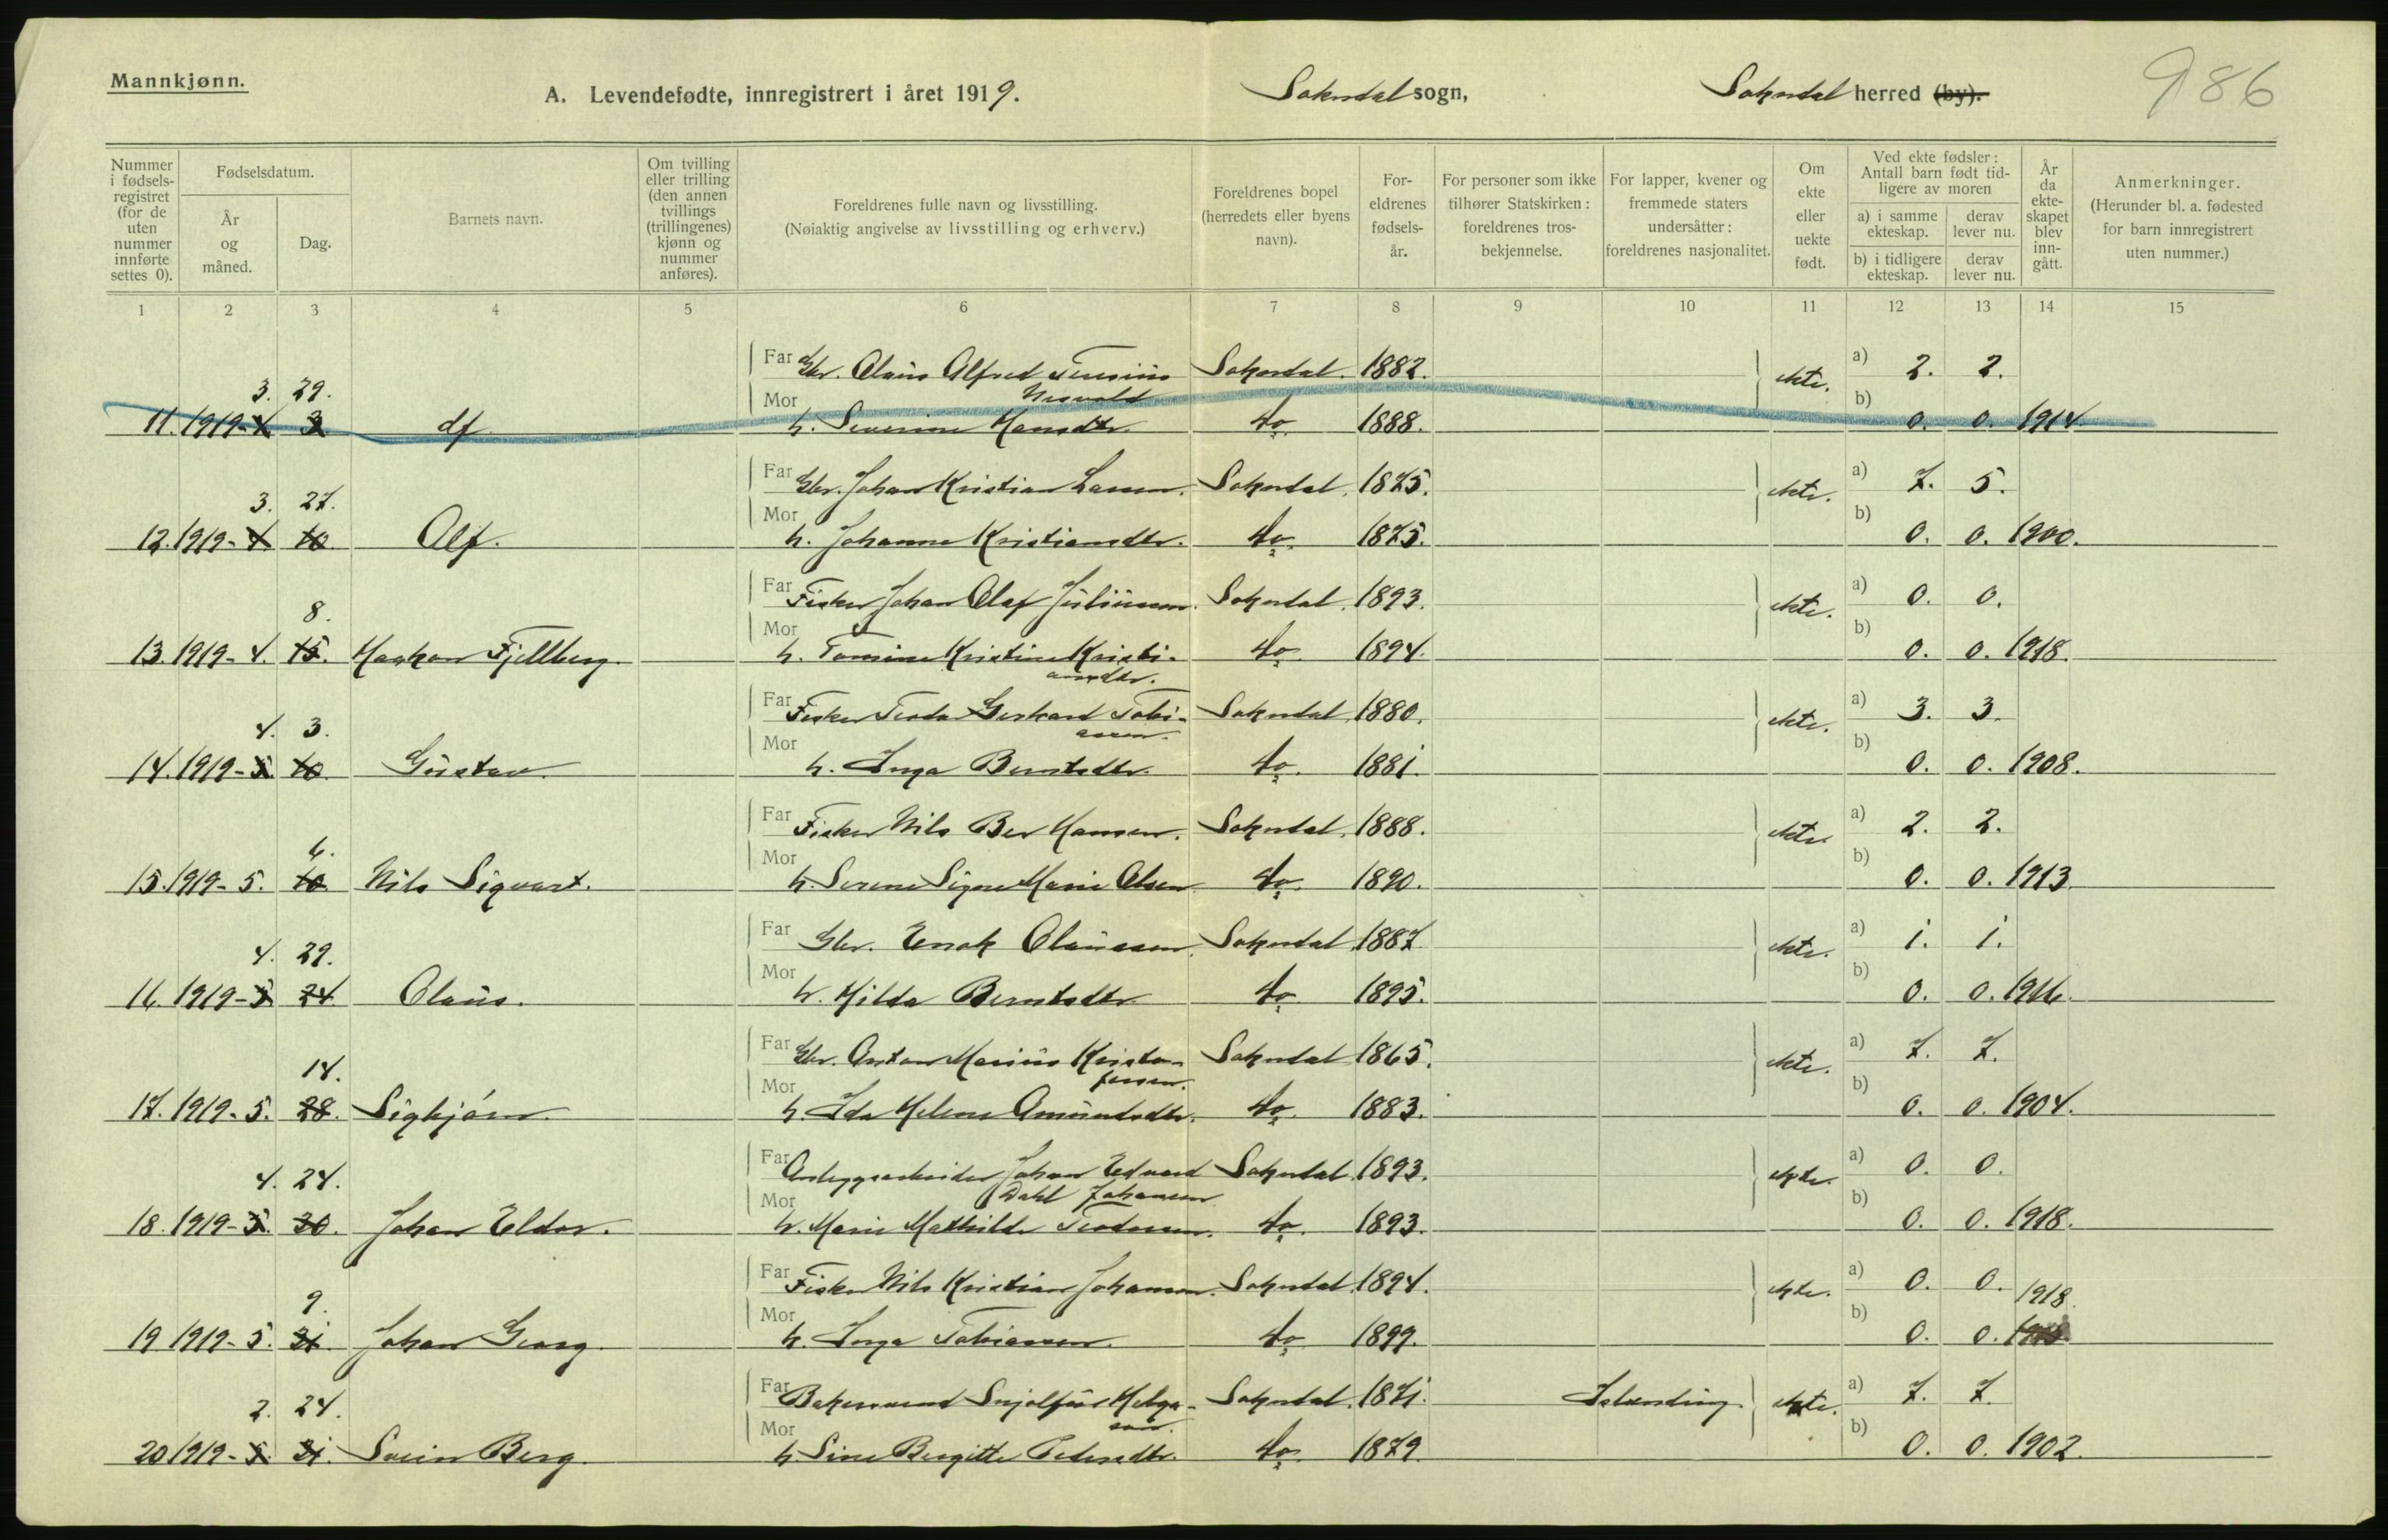 Mannkjønn.
A. Levendefødte, innregistrert i året 1919.
Sokndal sogn,
Sokndal herred (by).
986
Nummer i fødsels-registret (for de uten nummer innførte settes 0).
Fødselsdatum.
År og måned.
Dag.
Barnets navn.
Om tvilling eller trilling (den annen tvillings (trillingenes) kjønn og nummer anføres).
Foreldrenes fulle navn og livsstilling.
(Nøiaktig angivelse av livsstilling og erhverv.)
Foreldrenes bopel (herredets eller byens navn).
For-eldrenes fødsels-år.
For personer som ikke tilhører Statskirken: foreldrenes tros-bekjennelse.
For lapper, kvener og fremmede staters undersåtter: foreldrenes nasjonalitet.
Om ekte eller uekte født.
Ved ekte fødsler: Antall barn født tid-ligere av moren
a) i samme ekteskap.
derav lever nu.
b) i tidligere ekteskap.
derav lever nu.
År da ekte-skapet blev inn-gått.
Anmerkninger.
(Herunder bl. a. fødested for barn innregistrert uten nummer.)
1 2 3 4 5 6 7 8 9 10 11 12 13 14 15
Far Gbr. Olaus Alfred Tenesius Sokndal. 1882. ekte. a) 2. 2.
3. 29. Mor b)
11. 1919-4 3 df h. Severine Hansdtr. do 1888. 0. 0. 1914.
Far Gbr. Johan Kristian Larsen. Sokndal. 1875. ekte. a) 7. 5.
3. 27. Mor b)
12. 1919-4 10. Alf. h. Johanne Kristiansdtr. do 1875. 0. 0. 1900.
Far Fisker Johan Olaf Juliussen. Sokndal. 1893. ekte. a) 0. 0.
8. Mor b)
13. 1919-4. 15. Haakon Fjellberg. h. Tomine Kristine Kristi- do 1894. 0. 0. 1918.
ansdtr.
Far Fisker Teodor Gerhard Tobi- Sokndal. 1880. ekte. a) 3. 3.
assen.
4. 3. Mor b)
14. 1919-5. 10. Gustav. h. Inga Berntsdtr. do. 1881. 0. 0. 1908.
Far Fisker Nils Ber Hansen. Sokndal. 1888. ekte. a) 2. 2.
6. Mor b)
15. 1919-5. 10 Nils Sigvart. h. Serene Signe Marie Olsen do. 1890. 0. 0. 1913
Far Gbr. Enok Olaussen. Sokndal 1887 ekte. a) 1. 1.
4. 29. Mor b)
16. 1919-5 24. Olaus. h. Hilda Berntsdtr do 1895. 0. 0. 1916.
Far Gbr. Anton Marius Kristo- Sokndal 1865. ekte. a) 7. 7.
fersen.
14. Mor b)
17. 1919-5. 28. Sigbjørn. h. Ida Helene Amundsdtr. do 1883. 0. 0. 1904.
Far Anleggsarbeider Johan Edvard Sokndal. 1893. ekte. a) 0. 0.
Dahl Johansen
4. 24. Mor b)
18. 1919-5. 30. Johan Eldor. h. Marie Mathilde Teodorsen. do. 1893. 0. 0. 1918.
Far Fisker Nils Kristian Johansen. Sokndal. 1894. ekte. a) 0. 0. 1918.
9. Mor b)
19 1919-5. 31. Johan Georg. h. Inga Tobiassen. do 1899. 0. 0.
Far Bakersvend Snjolfur Helga- Sokndal. 1871. Islending. ekte. a) 7. 7.
son.
2. 24. Mor b)
20 1919-5. 31. Svein Berg. h. Sine Bergitte Pedersdtr. do. 1879. 0. 0. 1902.